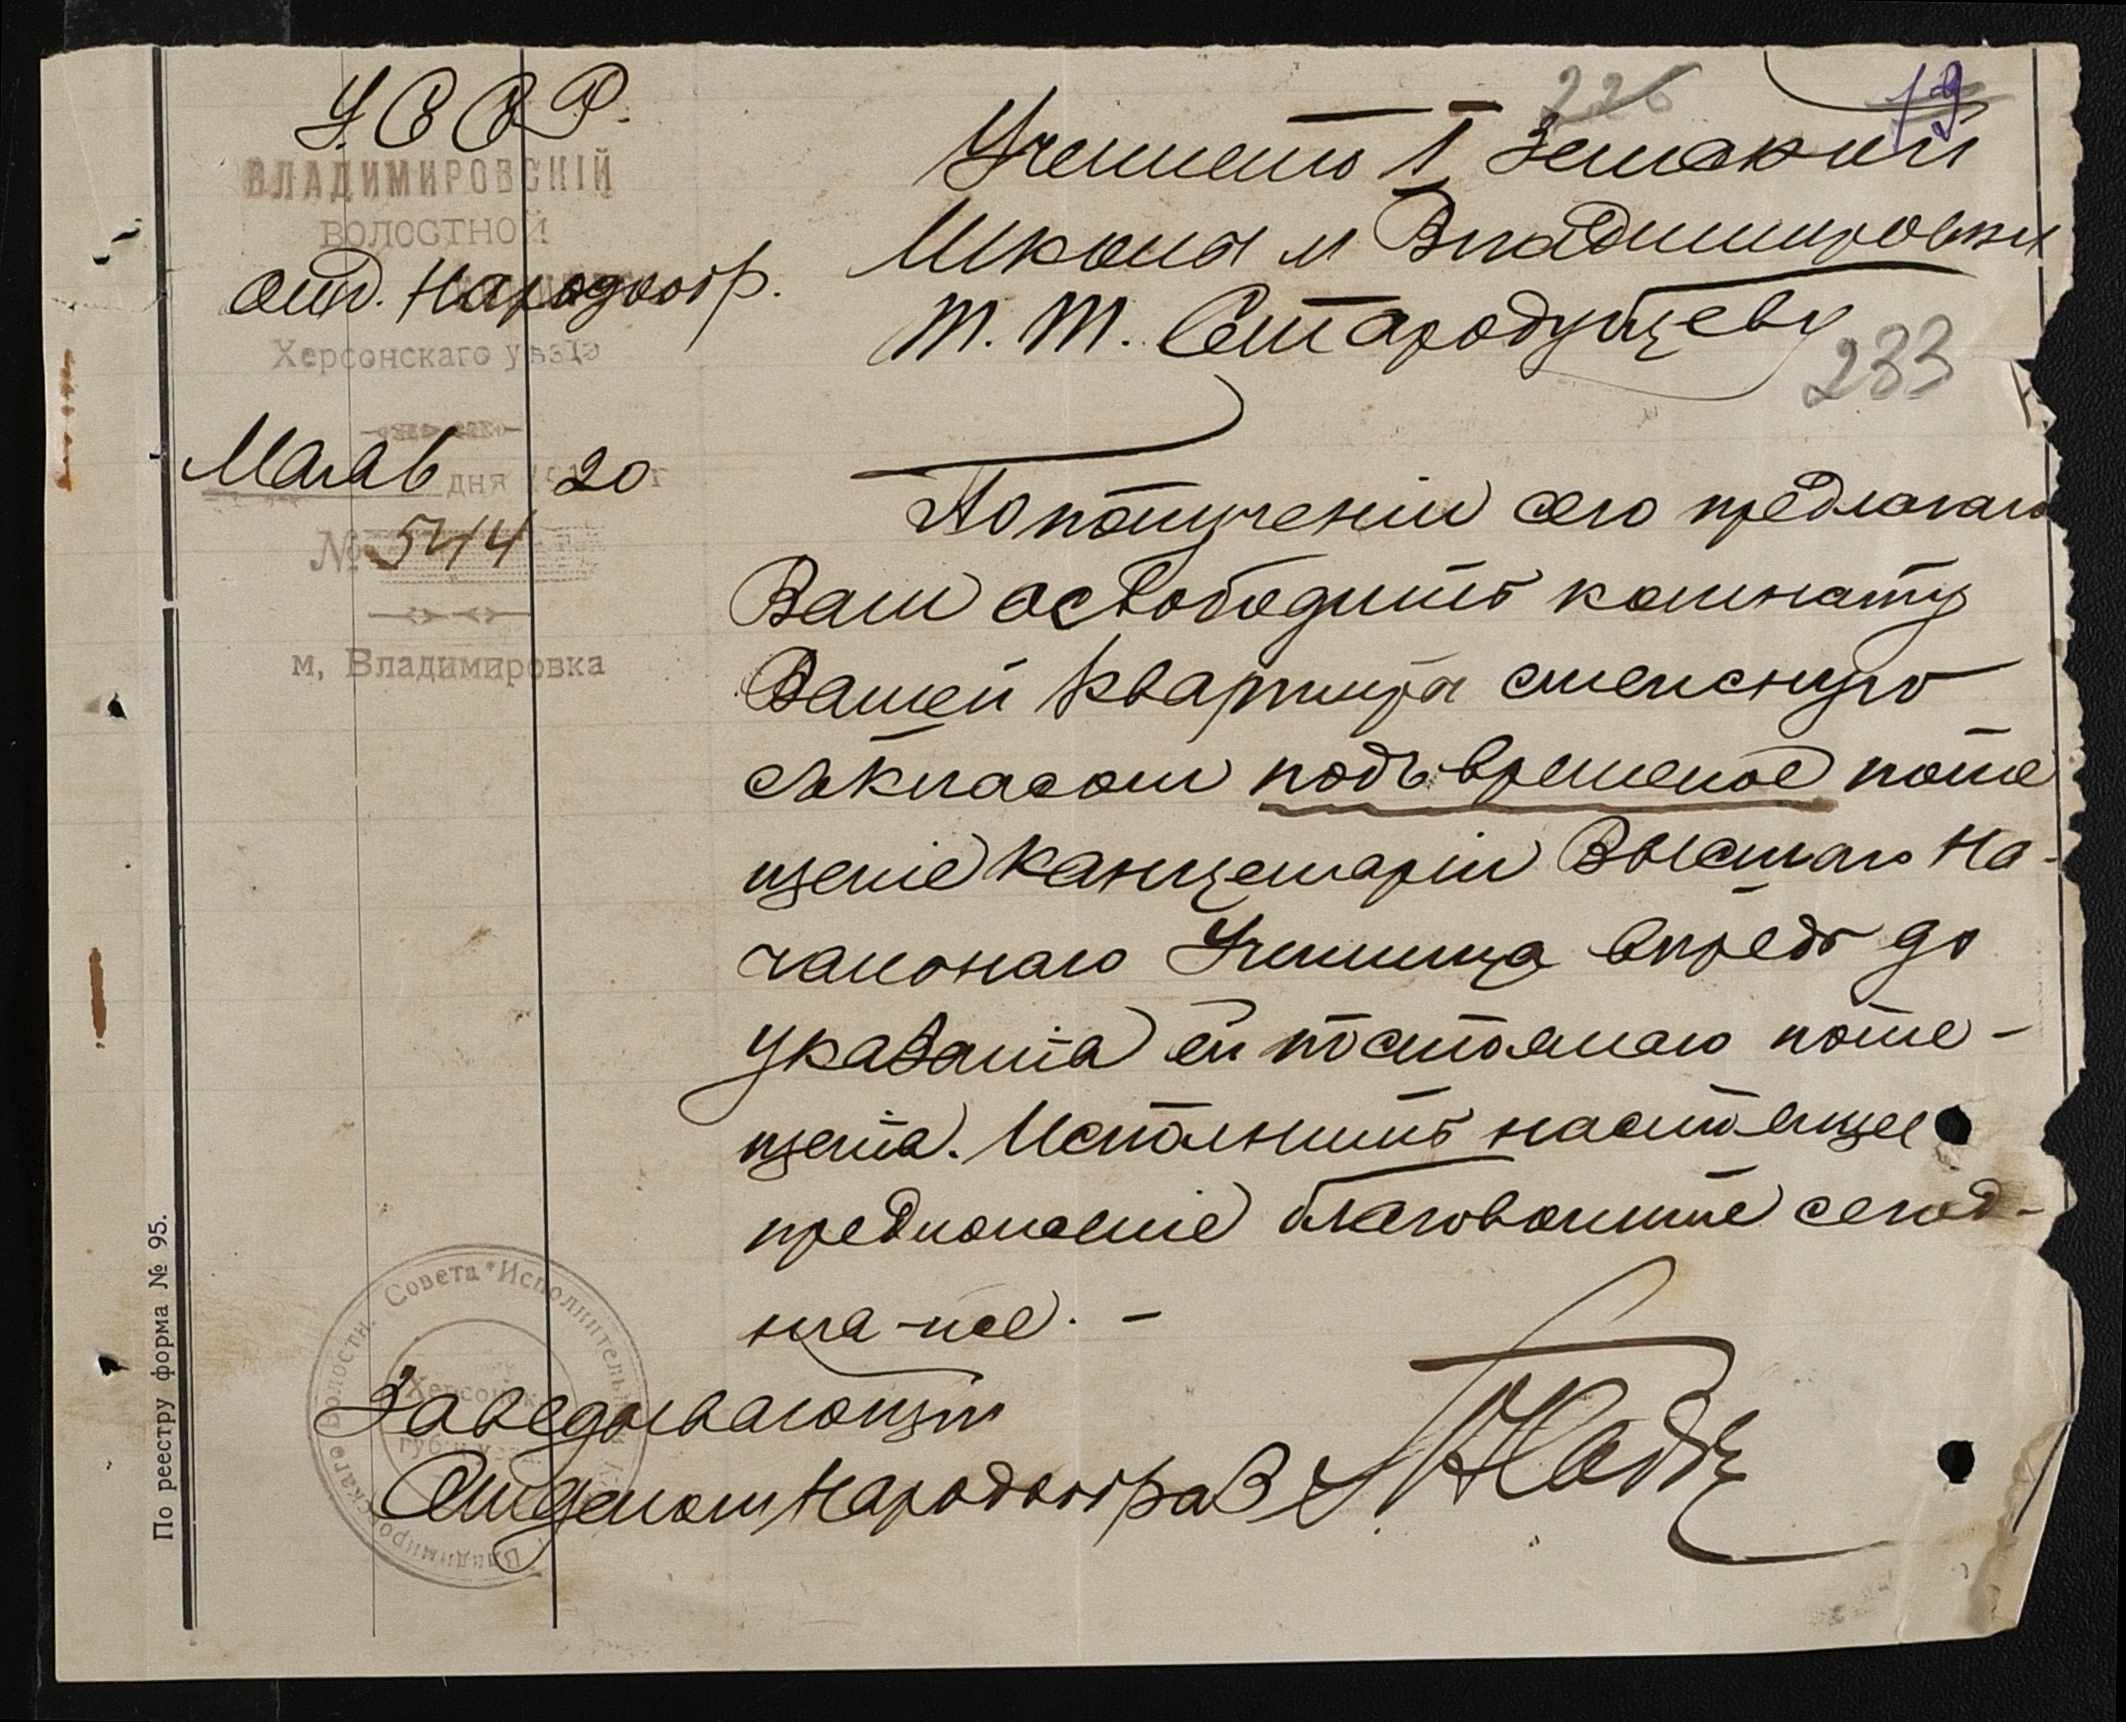 У.С.С.Р.
ВЛАДИМИРОВСКІЙ
ВОЛОСТНОЙ
Отд. Народообр.
Херсонскаго уѣзда
Мая 6 дня 20
№ 544
м, Владимировка
226
19
Учителю 1 Земской
Школы м Владимировки
т. т. Стародубцеву
233
По полученіи сего предлагаю
Вам освободить комнату
Вашей квартиры смежную
с классом подъ временое поме
щеніе канцеляріи Высшаго На-
чальнаго Училища впредь до
указанія ей постоянаго поме-
щенія. Исполнить настоящее
предложеніе благоволите сегод-
ня-же. -
Заведывающій
Отделом Народообраз
Совета * Исполнительн
Волостн.
Владимировскаго
Херсонск
губ.
По реестру форма № 95.